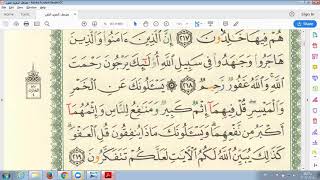 هُمْ فِيهَا خَالِدُونَ ٢١٧ إِنَّ الَّذِينَ ءَامَنُوا وَالَّذِينَ
هَاجَرُوا وَجَاهَدُوا فِي سَبِيلِ اللَّهِ أُولَئِكَ يَرْجُونَ رَحْمَتَ
اللَّهِ وَاللَّهُ غَفُورٌ رَحِيمٌ ٢١٨ يَسْأَلُونَكَ عَنِ الْخَمْرِ
وَالْمَيْسِرِ قُلْ فِيهِمَا إِثْمٌ كَبِيرٌ وَمَنَافِعُ لِلنَّاسِ وَإِثْمُهُمَا
أَكْبَرُ مِنْ نَفْعِهِمَا وَيَسْأَلُونَكَ مَاذَا يُنْفِقُونَ قُلِ الْعَفْوَ
كَذَلِكَ يُبَيِّنُ اللَّهُ لَكُمُ الْآيَاتِ لَعَلَّكُمْ تَتَفَكَّرُونَ ٢١٩